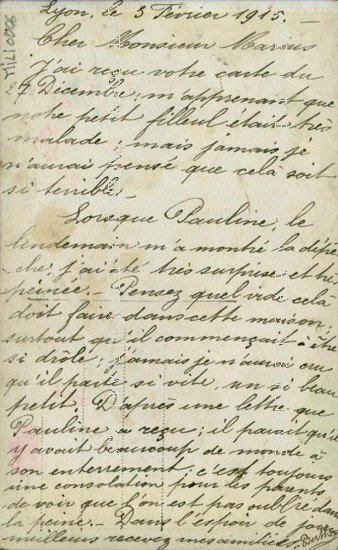 MIL1.0008
Lyon, le 3 Février 1915. -
Cher Monsieur Marius
J'ai reçu votre carte du
27 Décembre, m'apprenant que
notre petit filleul était très
malade ; mais jamais je
n'aurai pensé que celà soit
si terrible. -
Lorsque Pauline, le
lendemain m'a montré la dépê-
che, j'ai été très surprise et très
peinée. - Pensez quel vide celà
doit faire dans cette maison ;
surtout qu'il commençait à être
si drôle ; jamais je n'aurai cru
qu'il parte si vite, un si beau
petit. D'après une lettre que
Pauline a reçu ; il parait qu'il
y avait beaucoup de monde à
son enterrement ; c'est toujours
une consolation pour les parents
de voir que l'on est pas oublié dans
la peine. - Dans l'espoir de jours
meilleurs recevez mes amitiés